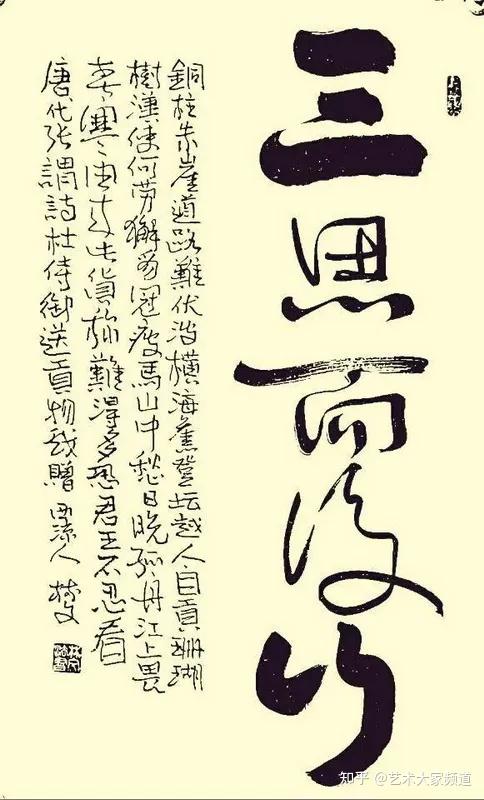 三思而後行
銅柱朱崖道路難伏波橫海舊登坛越人自貢珊瑚
樹漢使何勞獬豸冠疲馬山中愁日晚孤舟江上畏
春寒由來此貨称難得多恐君王不忍看
唐代张謂詩杜侍御送貢物戏贈
知乎 @艺术大家频道